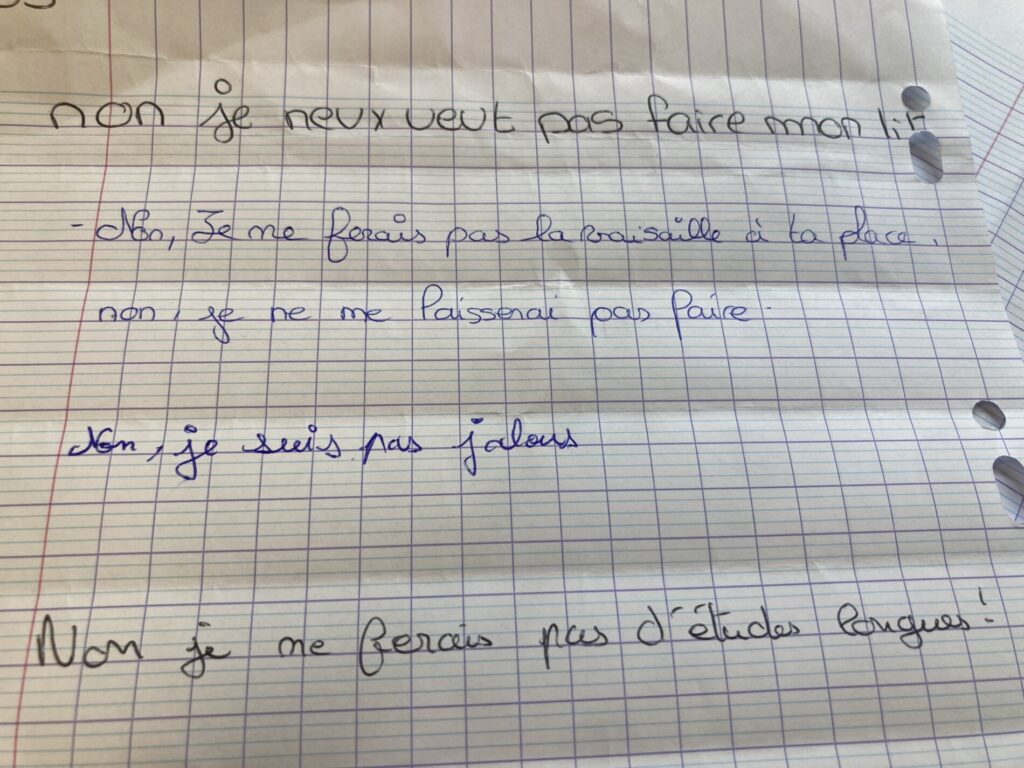 non je neux veut pas faire mon lit
- Non, Je ne ferais pas la vaisaille à ta place.
non, je ne me laisserai pas faire.
Non, je suis pas jalous
Non je ne ferais pas d'études longues!